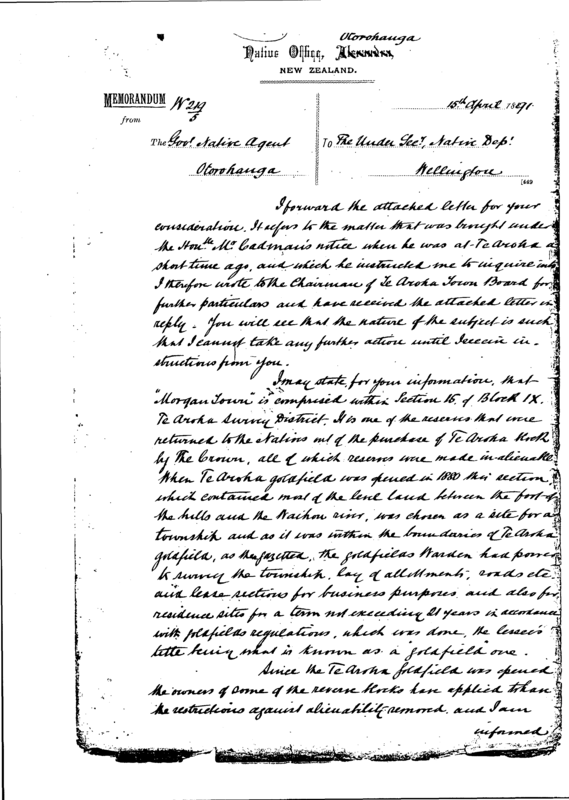 Otorohanga
Native Office, Alexandra,
NEW ZEALAND.
MEMORANDUM N 219/5
15th April 1891.
from
The Govt Native Agent
Otorohanga
To The Under Secy, Native Dept
Wellington
[649
I forward the attached letter for your
consideration. It refers to the matter that was brought under
the Honble Mr Cadman's notice when he was at Te Aroha a
short time ago, and which he instructed me to inquire into
I therefore wrote to the Chairman of Te Aroha Town Board for
further particulars and have received the attached letter in
reply. You will see that the nature of the subject is such
that I cannot take any further action until I receive in-
structions from you.
I may state, for your information, that
"Morgan Town" is comprised within Section 16 of Block IX.
Te Aroha Survey District. It is one of the reserves that were
returned to the Natives out of the purchase of Te Aroha block
by the Crown, all of which reserves were made inalienable
When Te Aroha goldfield was opened in 1880 this section,
which contained most of the level land between the foot of
the hills and the Waihou river, was chosen as a site for a
township and as it was within the boundaries of Te Aroha
goldfield, as the gazetted, the goldfields Warden had power
to survey the township, lay of allotments, roads etc.
and lease sections for business purposes and also for
residence sites for a term not exceeding 21 years in accordance
with goldfields regulations, which was done, the lessee's
title being what is known as a "goldfield" one.
Since the Te Aroha goldfield was opened
the owners of some of the reserve blocks have applied to have
the restrictions against alienability removed, and I am
informed